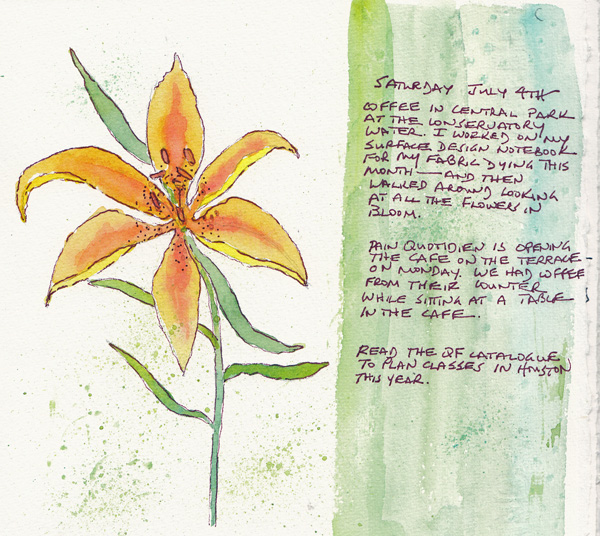 SATURDAY JULY 4TH
COFFEE IN CENTRAL PARK
AT THE CONSERVATORY
WATER. I WORKED ON MY
SURFACE DESIGN NOTEBOOK
FOR MY FABRIC DYING THIS
MONTH — AND THEN
WALKED AROUND LOOKING
AT ALL THE FLOWERS IN
BLOOM.
PAIN QUOTIDIEN IS OPENING
THE CAFE ON THE TERRACE -
ON MONDAY. WE HAD COFFEE
FROM THEIR COUNTER
WHILE SITTING AT A TABLE
IN THE CAFE.
READ THE QF CATALOGUE
TO PLAN CLASSES IN HOUSTON
THIS YEAR.